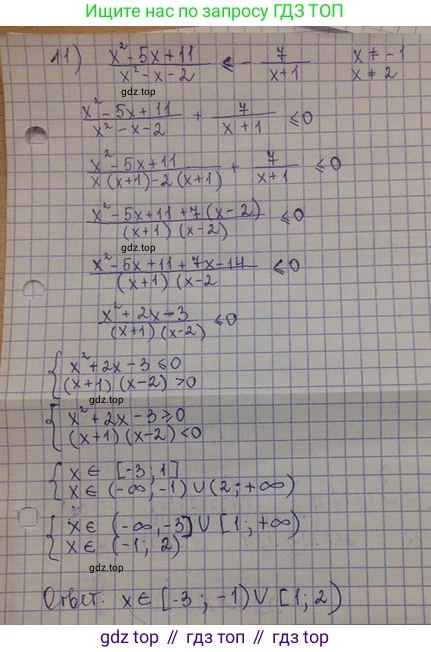 Ищите по запросу ГДЗ ТОП
11) x²-5x+11 / x²-x-2 ≤ - 7 / x+1 x ≠ -1 x ≠ 2
x²-5x+11 / x²-x-2 + 7 / x+1 ≤0
x²-5x+11 / x(x+1)-2(x+1) + 7 / x+1 ≤0
gdz.top
x²-5x+11+7(x-2) / (x+1)(x-2) ≤0
gdz.top
x²-5x+11+7x-14 / (x+1)(x-2 ≤0
x²+2x-3 / (x+1)(x-2) ≤0
gdz.top
{ x²+2x-3≤0
(x+1)(x-2)>0
{ x²+2x-3≥0
(x+1)(x-2)<0
gdz.top
{ x∈ [-3; 1]
x∈ (-∞; -1) ∪ (2; +∞)
{ x∈ (-∞; -3] ∪ [1; +∞)
x∈ (-1; 2)
gdz.top
Ответ: x∈[-3; -1) ∪ [1; 2)
gdz top // gdz top // gdz.top